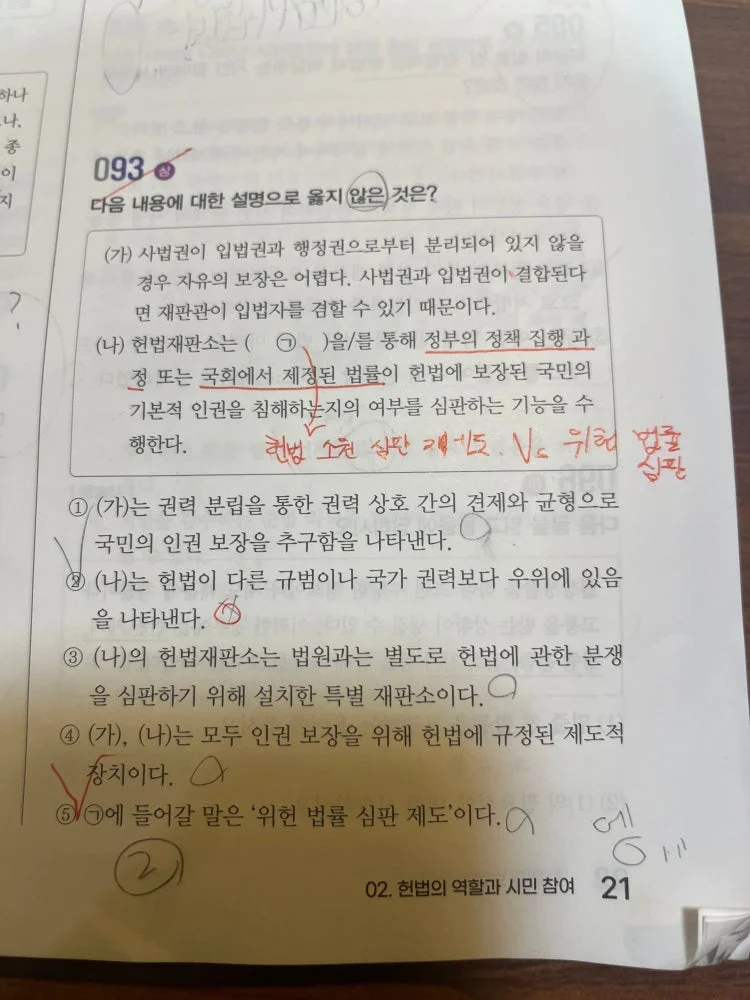 하나
나.
종
이
지
?
093 상
다음 내용에 대한 설명으로 옳지 않은 것은?
(가) 사법권이 입법권과 행정권으로부터 분리되어 있지 않을
경우 자유의 보장은 어렵다. 사법권과 입법권이 결합된다
면 재판관이 입법자를 겸할 수 있기 때문이다.
(나) 헌법재판소는 ( ㉠ )을/를 통해 정부의 정책 집행 과
정 또는 국회에서 제정된 법률이 헌법에 보장된 국민의
기본적 인권을 침해하는지의 여부를 심판하는 기능을 수
행한다.
헌법 소원 심판 제도. Vs 위헌 법률
심판
① (가)는 권력 분립을 통한 권력 상호 간의 견제와 균형으로
국민의 인권 보장을 추구함을 나타낸다.
② (나)는 헌법이 다른 규범이나 국가 권력보다 우위에 있음
을 나타낸다.
③ (나)의 헌법재판소는 법원과는 별도로 헌법에 관한 분쟁
을 심판하기 위해 설치한 특별 재판소이다.
④ (가), (나)는 모두 인권 보장을 위해 헌법에 규정된 제도적
장치이다.
⑤ ㉠에 들어갈 말은 '위헌 법률 심판 제도'이다.
02. 헌법의 역할과 시민 참여 21